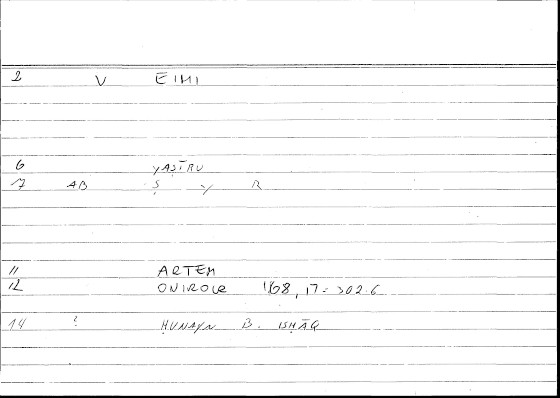 2 V EIMI
6 YAṢĪRU
17 AB Ṣ Y R
11 ARTEM
12 ONIROCR 168, 17 = 302.6
14 ? ḤUNAYN B. ISḤĀQ